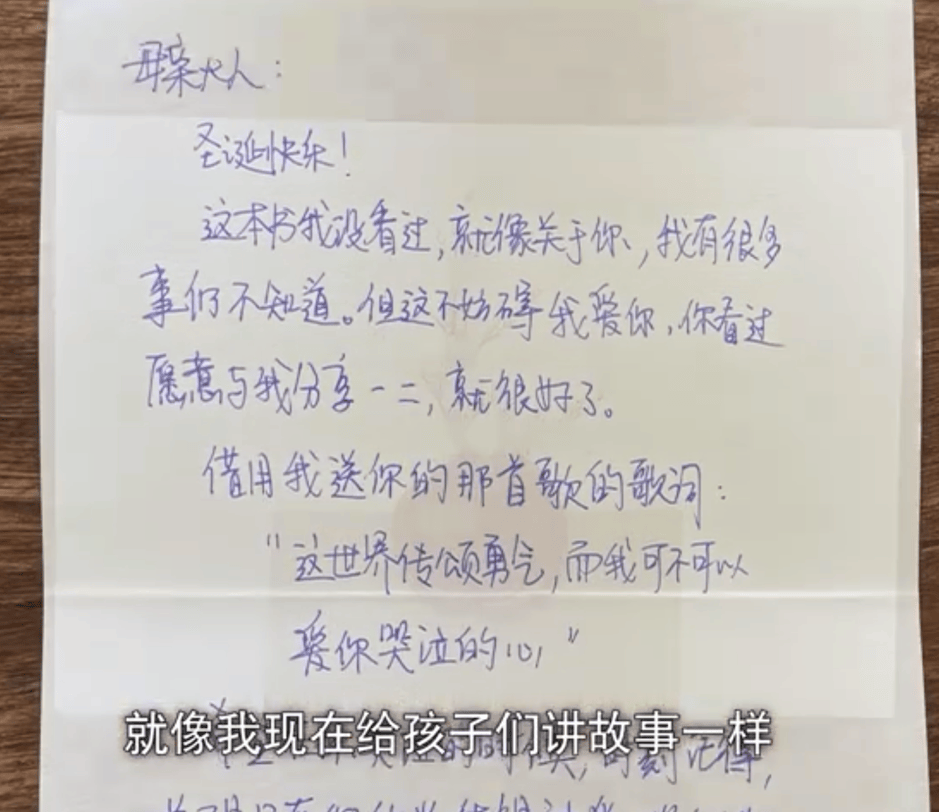 母亲大人：
圣诞快乐！
这本书我没看过，就像关于你，我有很多
事们不知道。但这不妨碍我爱你，你看过
愿意与我分享一二，就很好了。
借用我送你的那首歌的歌词：
“这世界传颂勇气，而我可不可以
爱你哭泣的心”
就像我现在给孩子们讲故事一样
时刻记得，